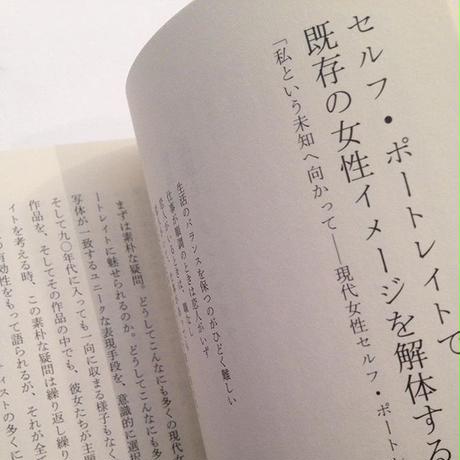 セルフ・ポートレイトで
既存の女性イメージを解体する
「私という未知へ向かって――現代女性セルフ・ポート
生活のバランスを保つのがひどく難しい
仕事が順調のときは恋人がいず
恋人がいるときは、
まずは素朴な疑問。どうしてこんなにも多くの現代女
ートレイトに魅せられるのか。どうしてこんなにも多
写体が一致するユニークな表現手段を、意識的に選択
そして九〇年代に入っても一向に収まる様子もなく
作品を、そしてその作品の中でも、彼女たちが主題
イトを考える時、この素朴な疑問は繰り返し繰り
有効性をもって語られるが、それが全て
ィストの多くに